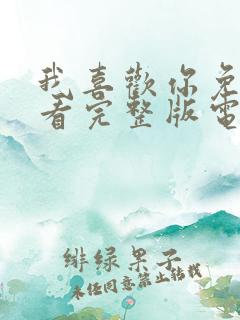 我喜歡你免
看完整版電
緋绿果子
未经同意禁止转载